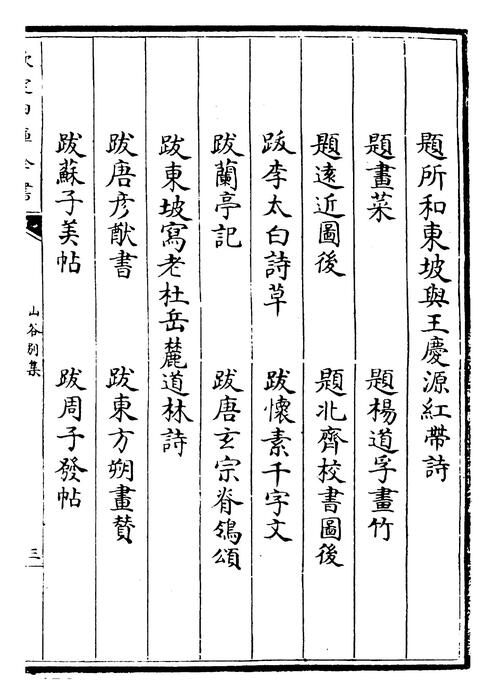 題所和東坡與王慶源紅帶詩
題畫菜　題楊道孚畫竹
題遠近圖後　題北齊校書圖後
跋李太白詩草　跋懷素千字文
跋蘭亭記　跋唐玄宗脊鴒頌
跋東坡寫老杜岳麓道林詩
跋唐彦猷書　跋東方朔畫贊
跋蘇子美帖　跋周子發帖
欽定四庫全書
山谷别集
三